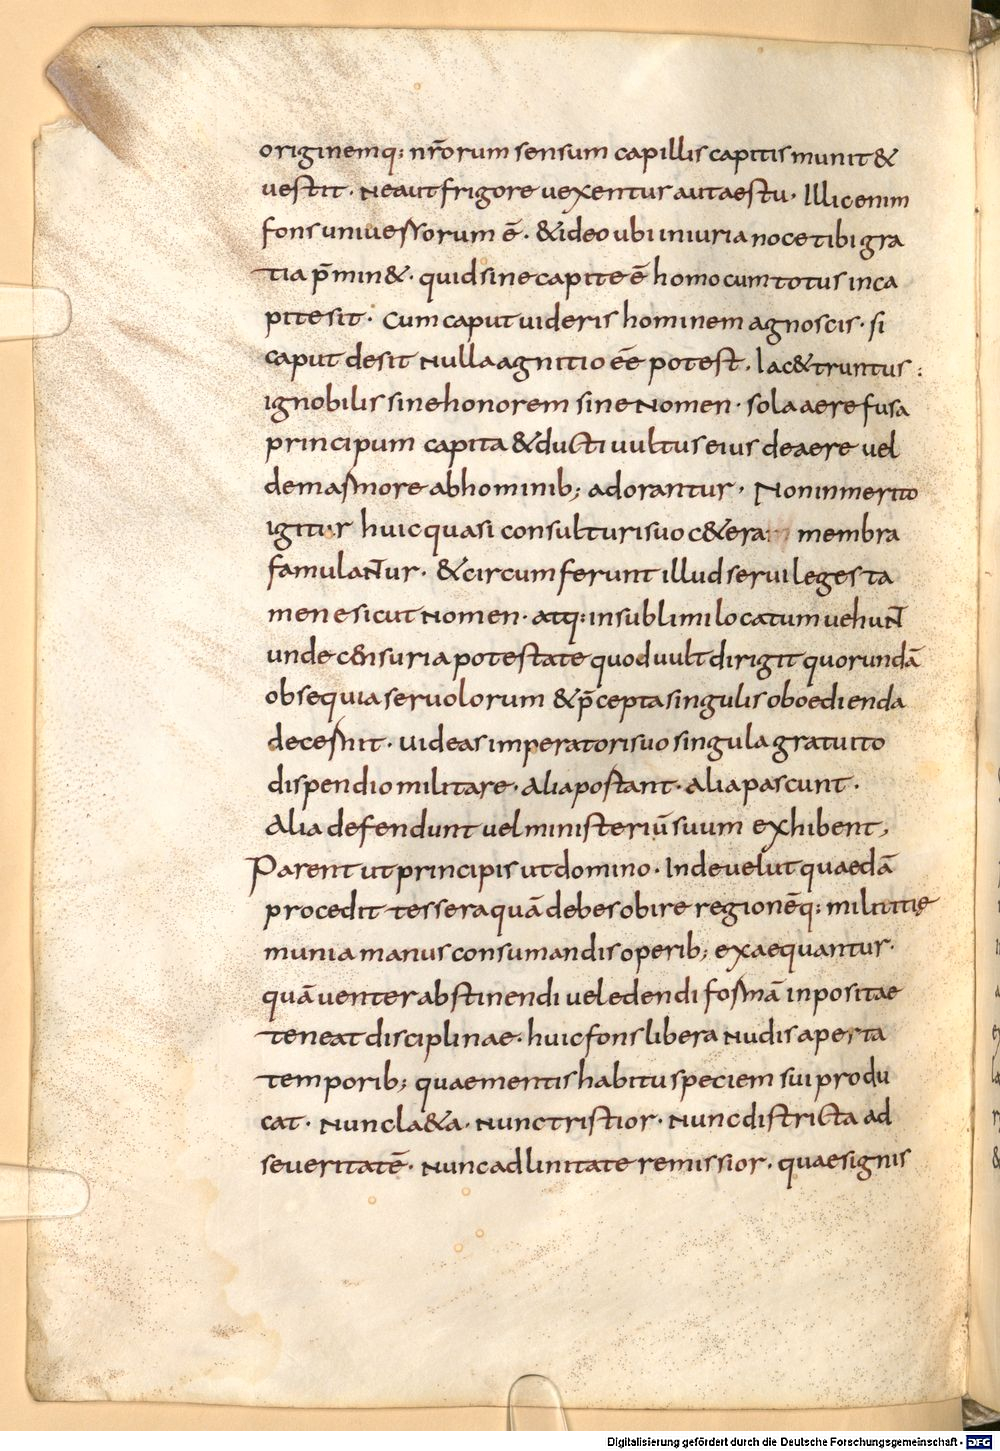 originemq: nr̄orum sensum capillis capitis munit &
vestit · Ne aut frigore vexentur aut aestu · Illic enim
fons universorum ē · & ideo ubi iniuria noce tibi gra
tia p̄min& · quid sine capite ē homo cum totus in ca
pite sit · Cum caput videris hominem agnoscis · si
caput desit Nulla agnitio eē potest · Iac& truntus :
ignobilis sine honorem sine Nomen · sola aere fusa
principum capita & ducti vultus eius de aere vel
de marmore ab hominib; adorantur · Non inmerito
igitur huic quasi consulturi suo c&era membra
famulaNtur · & circumferunt illud servile gesta
mene sicut Nomen · atq: in sublimi locatum vehuNt
unde censuria potestate quod vult dirigit quorundā
obsequia servolorum & p̄cepta singulis oboedienda
decernit · videas imperatori suo singula gratuito
dispendio militare · Alia portant · Alia pascunt ·
Alia defendunt vel ministeriū suum exhibent,
Parent ut principis ut domino · Inde velut quaedā
procedit tessera quā debes obire regionēq: militiae
munia manus consumandis operib; exaequantur ·
quā venter abstinendi vel edendi formā inpositae
teneat disciplinae · huic fons libera Nudis aperta
temporib; quae mentis habitu speciem sui produ
cat · Nunc la&a · Nunc tristior · Nunc districta ad
severitatē · Nunc ad linitate remissior · quae signis
Digitalisierung gefördert durch die Deutsche Forschungsgemeinschaft - DFG